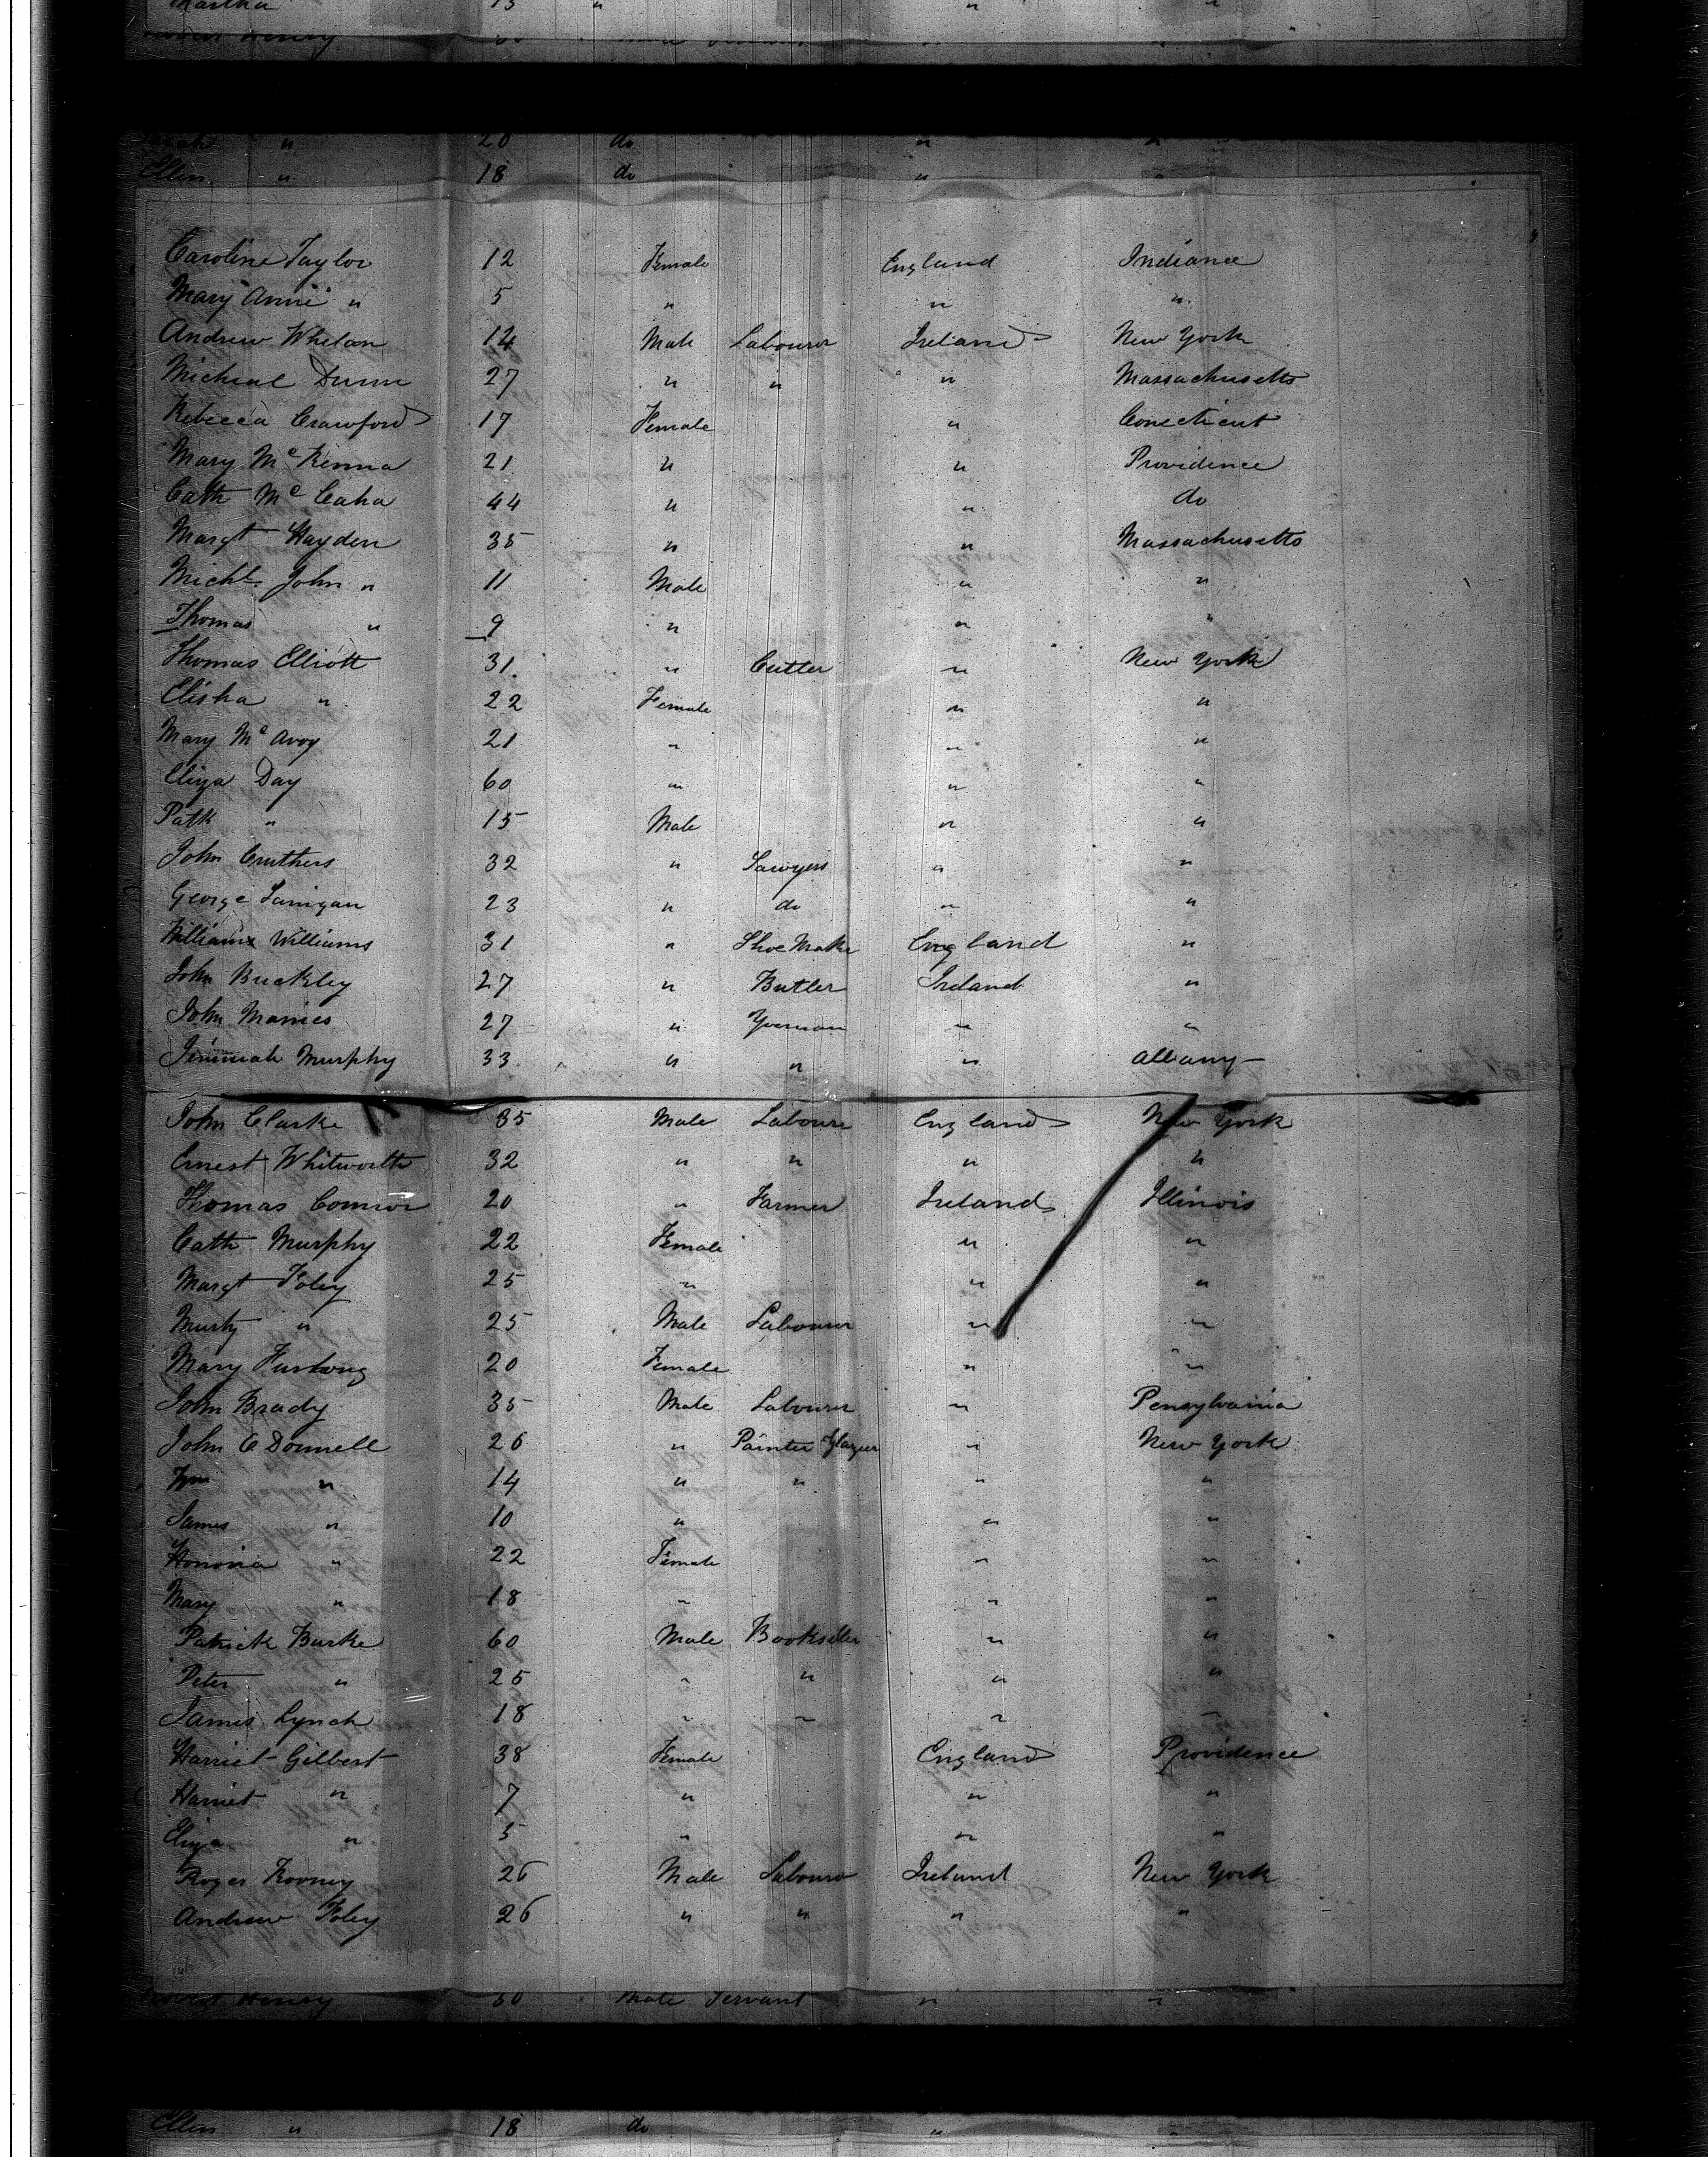 Martha 13 " " "
Henry
Sarah " 20 do " "
Ellen " 18 do " "
Caroline Taylor 12 Female England Indiana
Mary Anne " 5 " " "
Andrew Whelan 14 Male Labourer Ireland New York
Micheal Dunn 27 " " " Massachusetts
Rebecca Crawford 17 Female " Conecticut
Mary McKenna 21 " " Providence
Cath McCaha 44 " " do
Margt Hayden 35 " " Massachusetts
Michl John " 11 Male " "
Thomas " 9 " " "
Thomas Elliott 31 " Cutler " New York
Elisha " 22 Female " "
Mary McAvoy 21 " " "
Eliza Day 60 " " "
Patk " 15 Male " "
John Cruthers 32 " Sawyers " "
George Lanigan 23 " do " "
William Williams 31 " Shoe Make England "
John Buckley 27 " Butler Ireland "
John Manies 27 " Yoeman " "
Jerimiah Murphy 33 " " " Albany
John Clarke 35 Male Laboure England New York
Ernest Whitworth 32 " " " "
Thomas Connor 20 " Farmer Ireland Illinois
Cath Murphy 22 Female " "
Margt Foley 25 " " "
Murty " 25 Male Labourer " "
Mary Furlong 20 Female " "
John Brady 35 Male Labourer " Pensylvania
John O Donnell 26 " Painter Glazier " New York
Wm " 14 " " " "
James " 10 " " "
Honoria " 22 Female " "
Mary " 18 " " "
Patrick Burke 60 Male Bookseller " "
Peter " 25 " " " "
James Lynch 18 " " " "
Harriet Gilbert 38 Female England Providence
Harriet " 7 " " "
Eliza " 5 " " "
Roger Rooney 26 Male Labourer Ireland New York
Andrew Foley 26 " " " "
Henry 30 Male Servant " "
Ellen " 18 do "